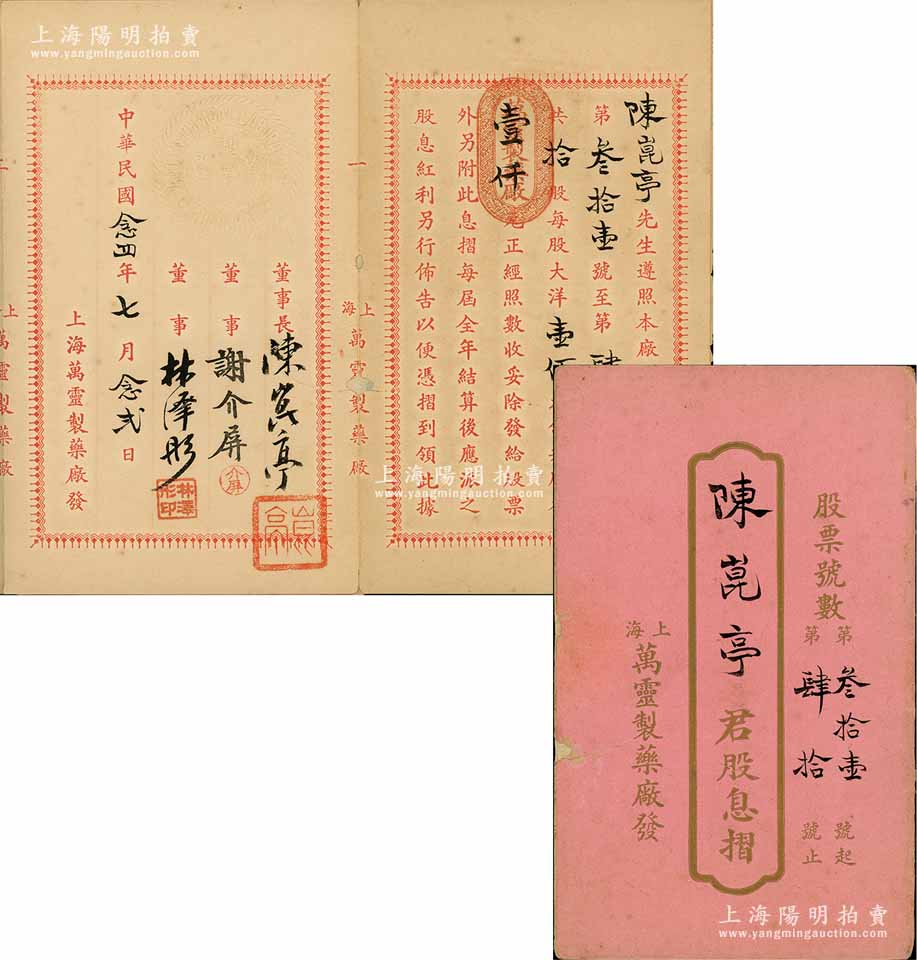 上海陽明拍賣
www.yangmingauction.com
陳崑亭先生遵照本廠
第叁拾壹號至第肆
共拾股每股大洋壹佰
壹仟
元正經照數收妥除發給股票
外另附此息摺每屆全年結算後應派之
股息紅利另行佈告以便憑摺到領此據
一
上海萬靈製藥廠
董事長陳崑亭
崑亭
董事謝介屏
介屏
董事林澤彤
林澤彤印
上海萬靈製藥廠發
中華民國念四年七月念弍日
一
上
萬靈製藥廠
上海陽明拍賣
www.yangmingauction.com
股票號數
第叁拾壹號起
第肆拾號止
陳崑亭君股息摺
上海萬靈製藥廠發
上海陽明拍賣
www.yangmingauction.com